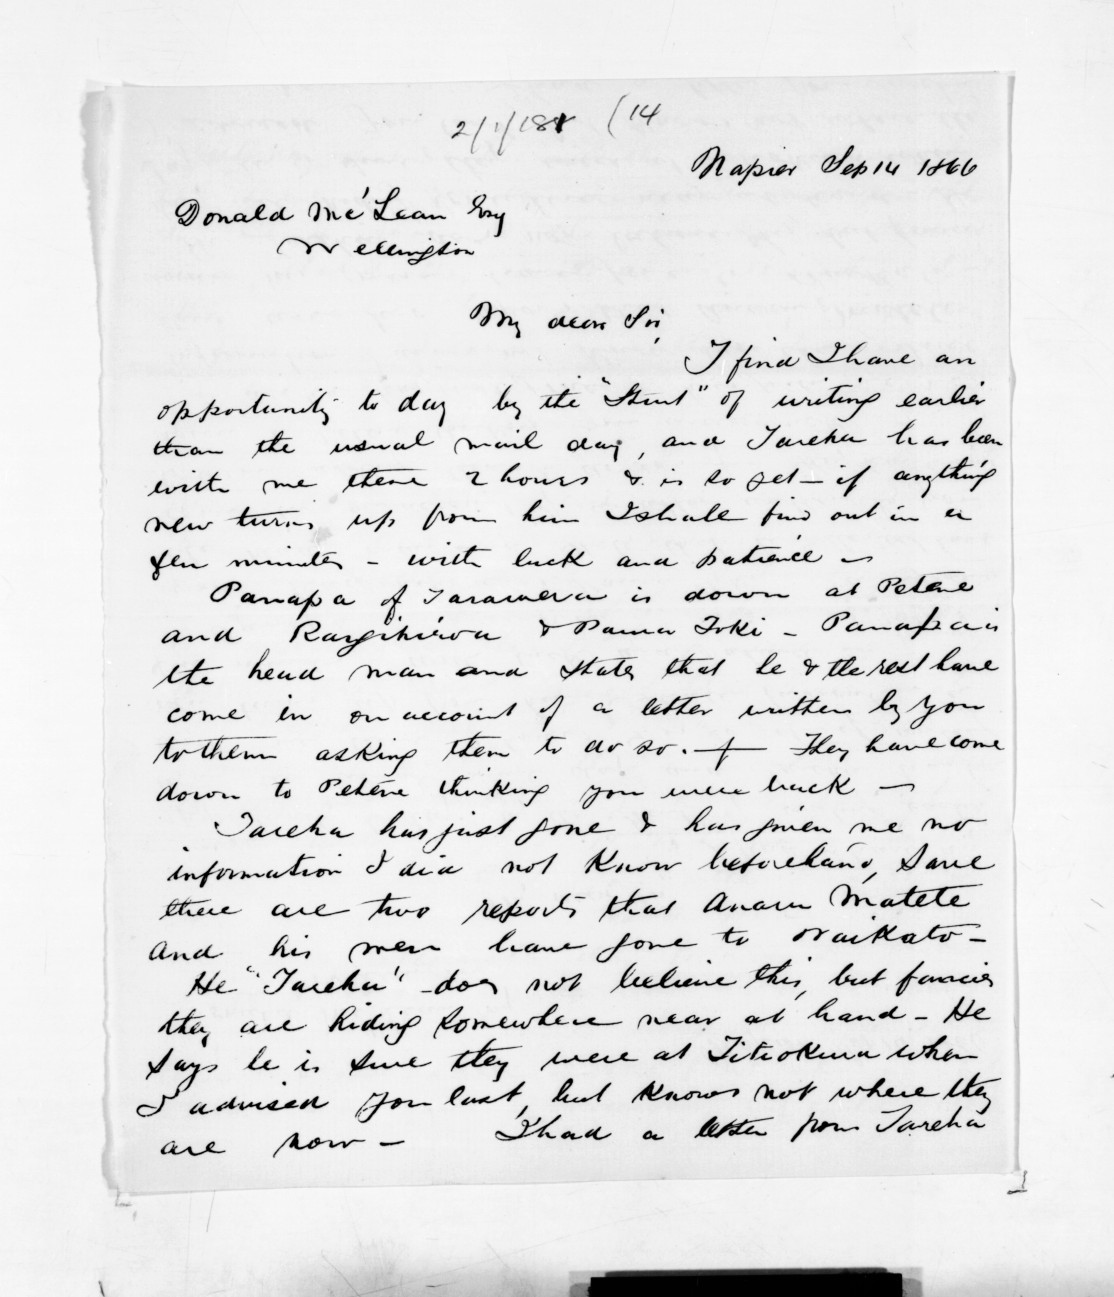 2/1/188 (14
Napier Sep 14 1866
Donald McLean Esq
Wellington
My dear Sir,
I find I have an
opportunity to day by the "Sturt" of writing earlier
than the usual mail day, and Tareha has been
with me these 2 hours & is so yet - if anything
new turns up from him I shall find out in a
few minutes - with luck and patience -
Panapa of Tarawera is down at Petane
and Rangihiroa & Paora Toki - Panapa is
the head man and states that he & the rest have
come in on account of a letter written by you
to them asking them to do so. - They have come
down to Petane thinking you were back -
Tareha has just gone & has given me no
information I did not know beforehand, save
there are two reports that Anaru Matete
and his men have gone to Waikato -
He "Tareha" - does not believe this, but fancies
they are hiding somewhere near at hand - He
says he is sure they were at Titiokura when
I advised you last, but knows not where they
are now - I had a letter from Tareha